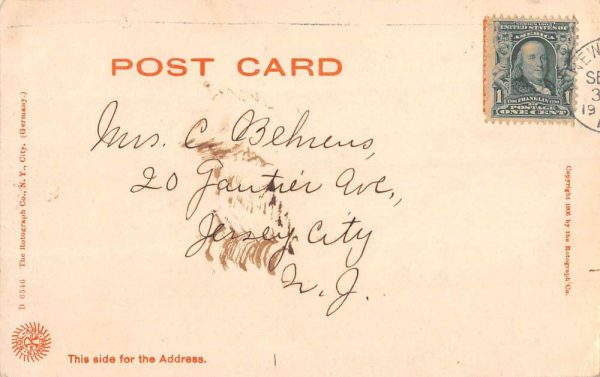 POST CARD
SERIES 1902
UNITED STATES OF
AMERICA
1
FRANKLIN
POSTAGE
ONE CENT
NEW
SE
3
19
Mrs. C. Behrens,
20 Gautier Ave.,
Jersey City
N. J.
D 6546 The Rotograph Co., N. Y., City. (Germany.)
Copyright 1905 by the Rotograph Co.
This side for the Address.